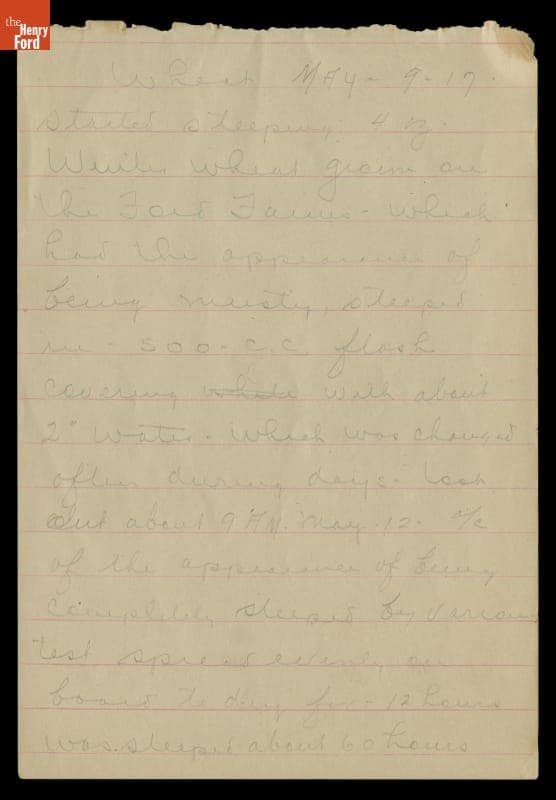 the
Henry
Ford
Wheat MAY - 9 - 17.
started steeping 4 oz.
Winter wheat grown on
the Ford Farms - which
had the appearance of
being , steeped
in - 500 - C.C. flask
covering with about
2" water - which was changed
often during days - took
out about 9 AM. May. 12 - a/c
of the appearance of being
completely steeped by various
test spread evenly on
board to dry for - 12 hours
was steeped about 60 hours